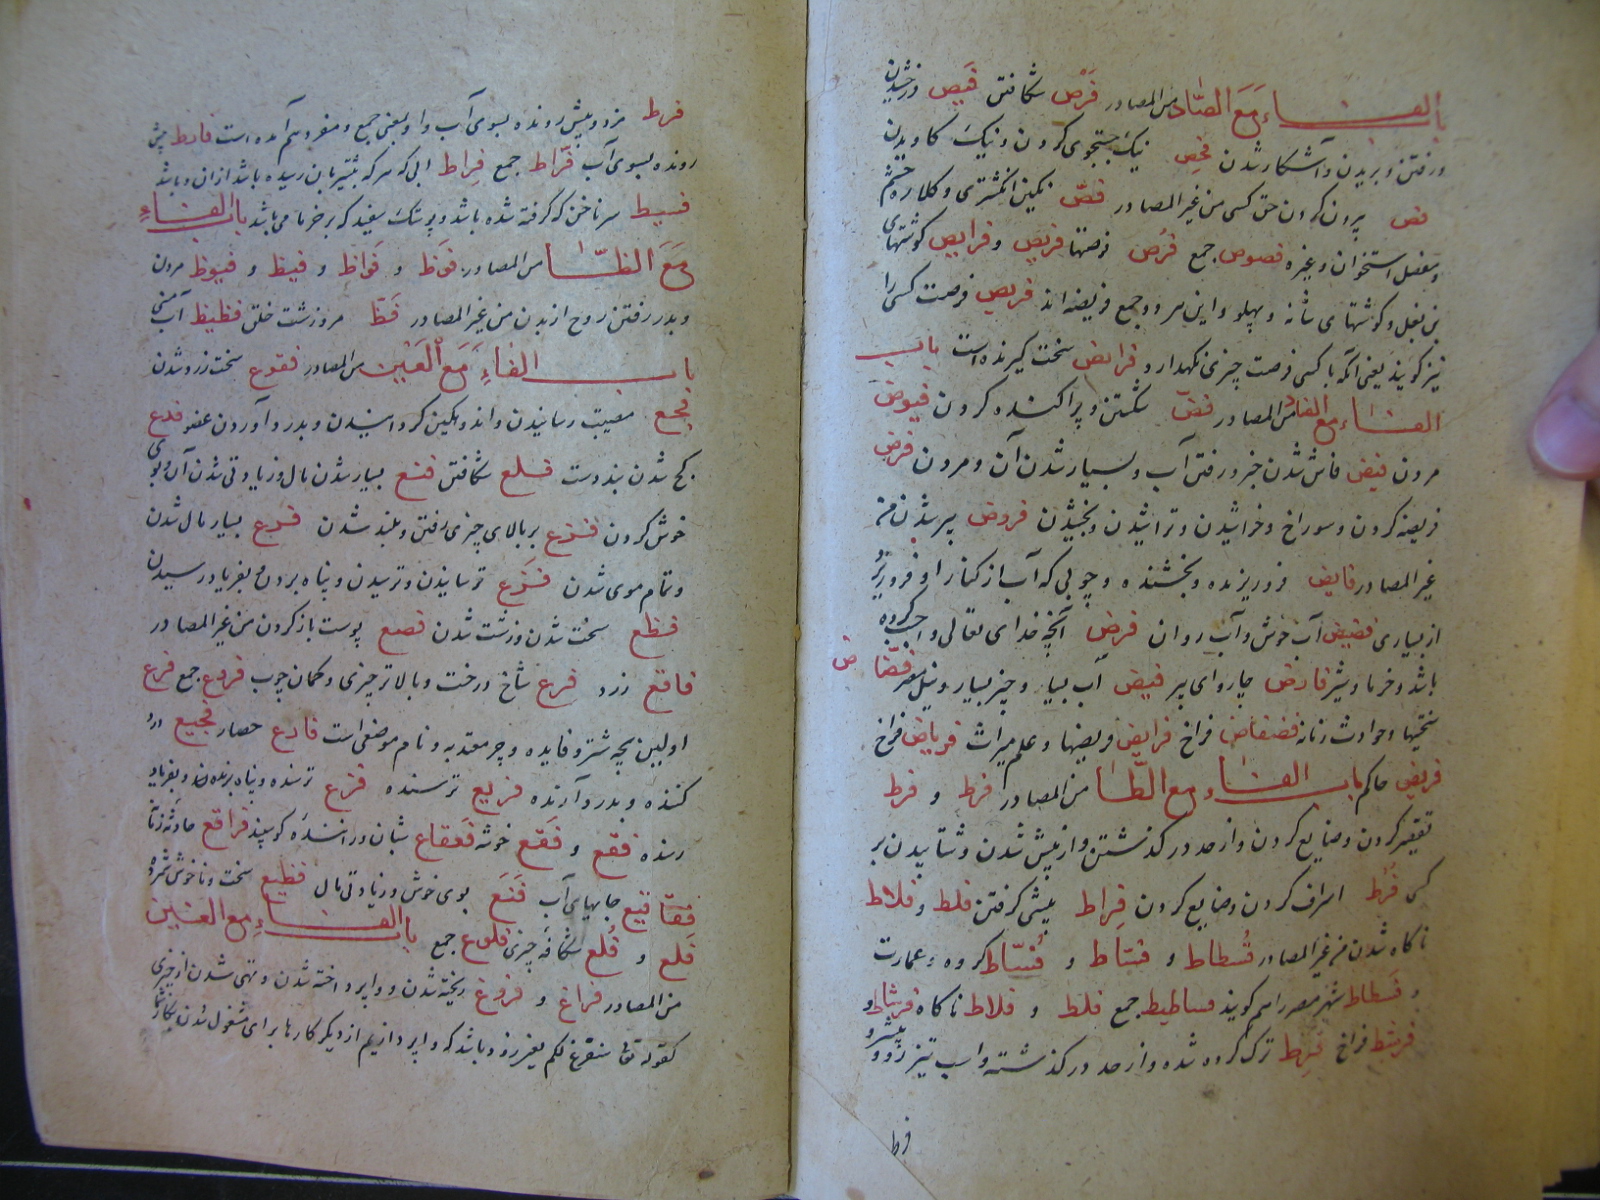 باب الفاء مع الصاد من المصادر فَرْص شکافتن فَیص درخشیدن
و رفتن و بریدن و آشکار شدن فحص نیک جستجوی کردن و نیک کاویدن
فص بیرون کردن حق کسی من غیر المصادر فصّ نگین انگشتری و کلاره چشم
و مفصل استخوان و غیره فصوص جمع فرص فرصتها فریص و فرایص گوشتهای
بن بغل و گوشتهای شانه و پهلو و این هر دو جمع فریصه اند فریص فرصت کسی را
نیز گویند یعنی آنکه با کسی فرصت چیزی نگهدارد و فرایص سخت گیرنده است باب
الفاء مع الضاد من المصادر فضّ شکستن و پراکنده کردن فیوض
مردن فیض فاش شدن خبر و رفتن آب و بسیار شدن آن و مردن فرض
فریضه کردن و سوراخ و خراشیدن و تراشیدن و بخشیدن فروض پیر شدن من
غیر المصادر فایض فرو ریزنده و بخشنده و جوبی که آب از کنار او فرو ریزد
از بسیاری فضیض آب خوش و آب روان فرض آنچه خدای تعالی واجب کرده
باشد و خرما و شیر فارض چاروای پیر فیض آب بسیار و چیز بسیار و نیل مصر فضّاض
سختیها و حوادث زمانه فضفاض فراخ فرایض فریضها و علم میراث فریاض فراخ
فریض حاکم باب الفاء مع الطا من المصادر فرط و فرط
تقصیر کردن و ضایع کردن و از حد در گذشتن و از پیش شدن و شتابیدن بر
کسی فرط اسراف کردن و ضایع کردن فِراط پیشی گرفتن فلط و فلاط
ناگاه شدن من غیر المصادر فُسطاط و فستاط و فُسّاط گروه و عمارت
و فسطاط شهر مصر را هم گویند فساطیط جمع فلط و فلاط ناگاه فرشاط و
فرشط فراخ فرط ترک کرده شده و از حد در گذشته و اسب تیز رو و پیشرو
فرط
فرط مزد و پیش رونده بسوی آب و او بمعنی جمع و مفرد هم آمده است فارط پیش
رونده بسوی آب فرّاط جمع فِراط آبی که هر که پیشتر بان رسیده باشد از ان او باشد
فسیط سر ناخن که گرفته شده باشد و پوستک سفید که بر خرما می باشد باب الفاء
مَعَ الظّا من المصادر فوظ و فواظ و فیظ و فیوظ مردن
و بدر رفتن روح از بدن من غیر المصادر فَظّ مرد زشت خلق فظیظ آب منی
باب الفاءِ مَعَ الْعَیْن من المصادر فقوع سخت زرد شدن
فجع مصیبت رسانیدن و اندوهگین گردانیدن و بدرد آوردن عضو فدع
کج شدن بند دست فلع شکافتن فنع بسیار شدن مال و زیادتی شدن آن و بوی
خوش کردن فرع بر بالای چیزی رفتن و بلند شدن فرع بسیار مال شدن
و تمام موی شدن فَزَع ترسانیدن و ترسیدن و پناه بردن و بفریاد رسیدن
فظع سخت شدن و زشت شدن فصع پوست باز کردن من غیر المصادر
فاقع زرد فرع شاخ درخت و بالاتر چیزی و کمان چوب فروع جمع فرع
اولین بچه شتر و فایده و چیز معتد به و نام موضعی است فارع حصار فجیع درد
کننده و بدرد آرنده فزیع ترسنده فزع ترسنده و پناه برنده و بفریاد
رسنده فقع و فَقع خوشه فَعفاع شبان و راننده گوسپند فراقع حادثه زمانه
فقاقیع حبابهای آب فَنَعَ بوی خوش و زیادتی مال فظیع سخت و ناخوش شمرده
فَلع و فُلع شکاف چیزی فلوع جمع باب الفاء مع الغین
من المصادر فراغ و فروغ ریخته شدن و واپرداخته شدن و تهی شدن از چیزی
کقوله تعا سنفرغ لکم یعنی زود باشد که واپردازیم از دیگر کارها برای مشغول شدن بکار شما